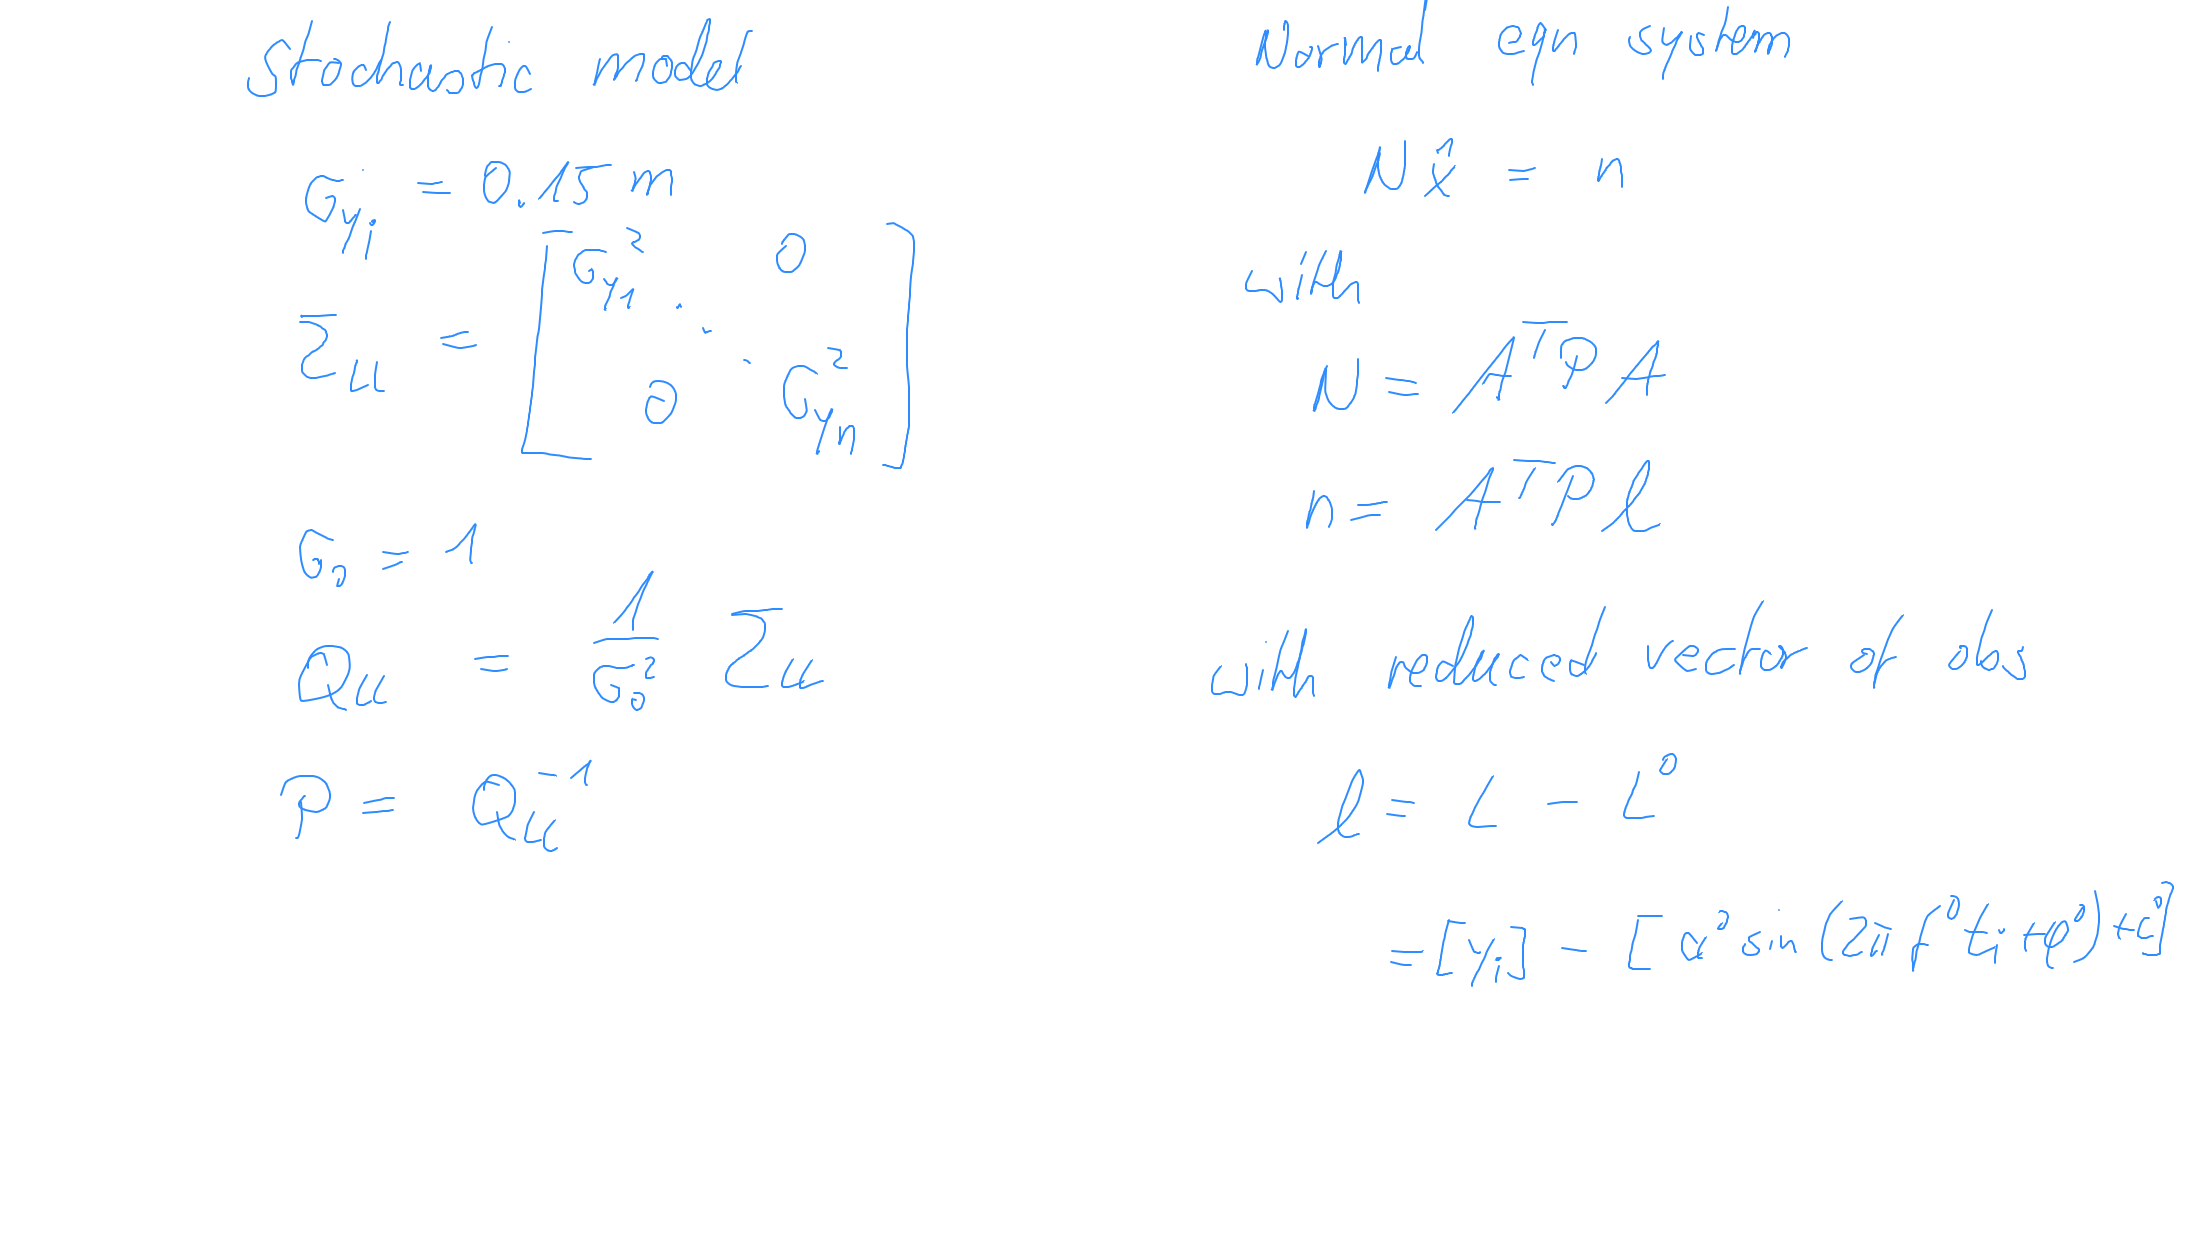 Stochastic model
σ_yi = 0.15 m
Σ_ll = [ σ_y1² 0 ⋱ 0 σ_yn² ]
σ_0 = 1
Q_ll = 1/σ_0² Σ_ll
P = Q_ll^-1
Normal eqn system
N x̂ = n
with
N = A^T P A
n = A^T P l
with reduced vector of obs
l = L - L^0
= [y_i] - [a^0 sin (2π f^0 t_i + φ^0) + c^0]